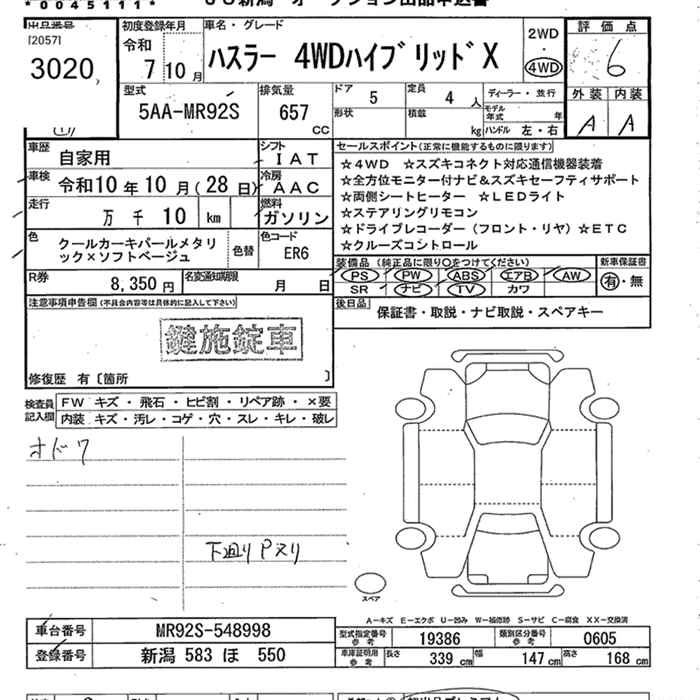 *0045111*
JU新潟 オークション出品申込書
出品番号
[2057]
3020
初度登録年月
令和
7 10月
車名・グレード
ハスラー 4WDハイブリッドX
2WD
・
4WD
評価点
6
外装 内装
A A
型式
5AA-MR92S
排気量
657
CC
ドア
5
定員
4 人
形状
積載
kg
ディーラー・並行
モデル年式 年
ハンドル 左・右
車歴
自家用
シフト
IAT
車検
令和10年10月(28日)
冷房
AAC
走行
万 千 10 km
燃料
ガソリン
色
クールカーキパールメタリック×ソフトベージュ
色替
色コード
ER6
R券
8,350円
名変通知期限
月 日
セールスポイント(正常に機能するものに限ります)
☆4WD ☆スズキコネクト対応通信機器装着
☆全方位モニター付ナビ&スズキセーフティサポート
☆両側シートヒーター ☆LEDライト
☆ステアリングリモコン
☆ドライブレコーダー(フロント・リヤ)☆ETC
☆クルーズコントロール
装備品(純正品に限り○をつけてください)
PS PW ABS エアB AW
SR ナビ TV カワ
新車保証書
有・無
後日品
保証書・取説・ナビ取説・スペアキー
注意事項申告欄(不具合内容等は具体的に記入して下さい)
鍵施錠車
修復歴 有〔箇所 〕
検査員記入欄
FW キズ・飛石・ヒビ割・リペア跡・×要
内装 キズ・汚レ・コゲ・穴・スレ・キレ・破レ
オドワ
下廻りPヌリ
スペア
A-キズ E-エクボ U-凹み W-補修跡 S-サビ C-腐食 XX-交換済
車台番号
MR92S-548998
登録番号
新潟 583 ほ 550
型式指定番号
参考
19386
類別区分番号
参考
0605
車庫証明用
参考
長さ 339 cm
幅 147 cm
高さ 168 cm